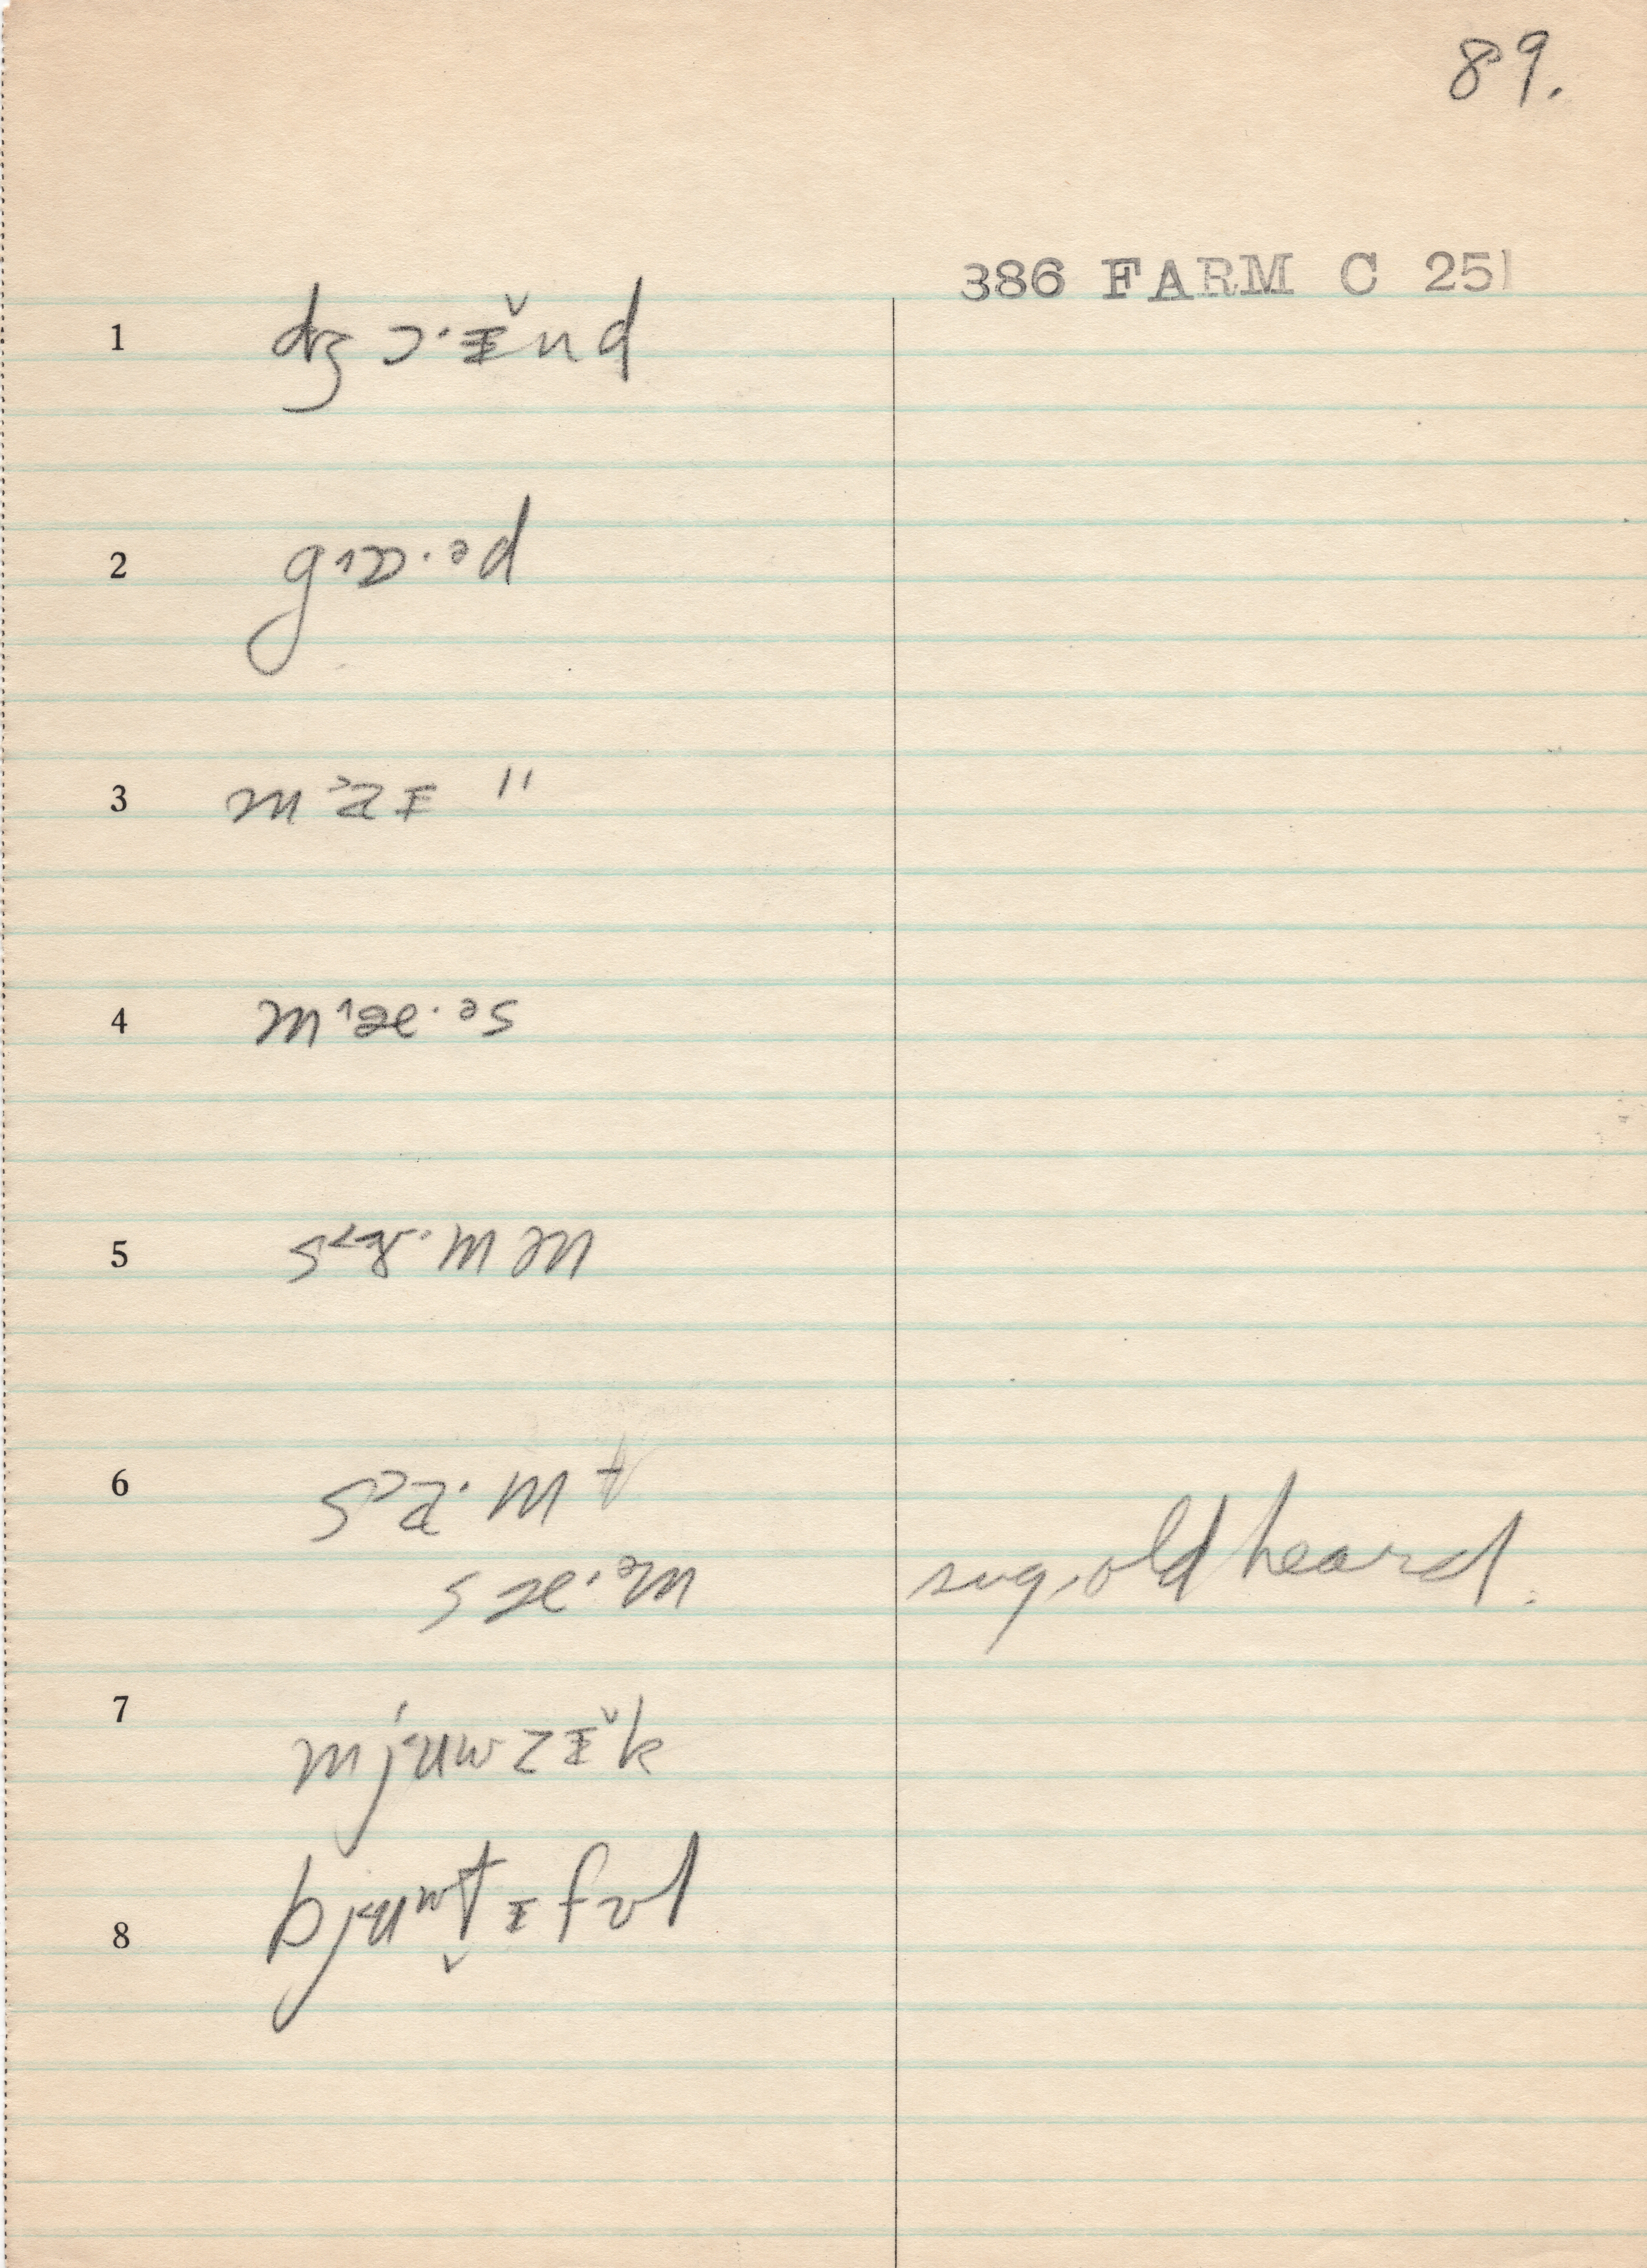 89.
386 FARM C 251
1 dʒɔ·ɪ̆nd
2 g˄ɒ·ᵊd
3 m˃aɪ "
4 m˄æ·ᵊs
5 s˂ɤ·mən
6 s˃a·mt
sæ·ᵊm sug. old heard.
7 mj˂uwzɪ̆k
8 bj˂uʷt̬ɪfʊl